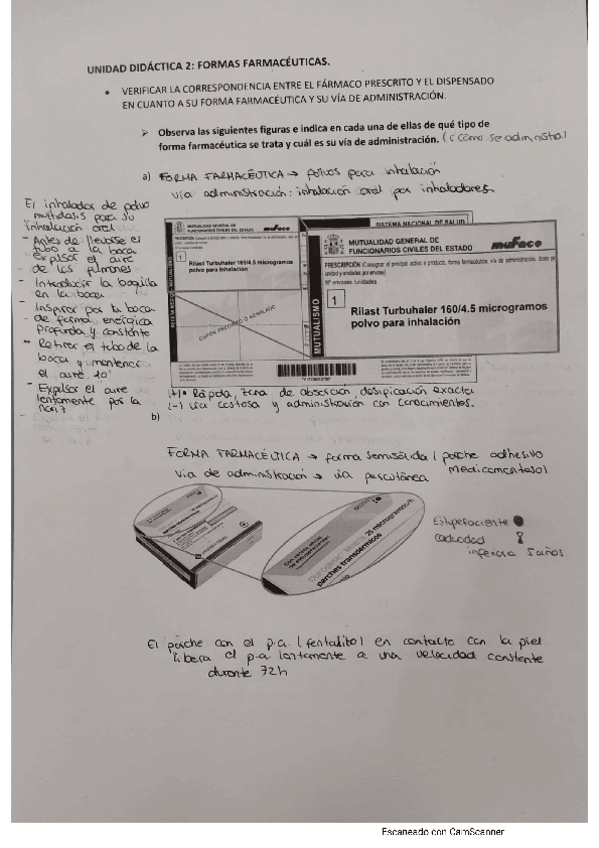 UNIDAD DIDÁCTICA 2: FORMAS FARMACÉUTICAS.
• VERIFICAR LA CORRESPONDENCIA ENTRE EL FÁRMACO PRESCRITO Y EL DISPENSADO
EN CUANTO A SU FORMA FARMACÉUTICA Y SU VÍA DE ADMINISTRACIÓN.
➢ Observa las siguientes figuras e indica en cada una de ellas de qué tipo de
forma farmacéutica se trata y cuál es su vía de administración. (cómo se administra)
a) FORMA FARMACÉUTICA → polvos para inhalación
vía administración: inhalación oral por inhaladores.
El inhalador de polvo
multidosis para su
inhalación oral
- Antes de llevarse el
tubo a la boca
expulsar el aire
de los pulmones
- Introducir la boquilla
en la boca
- Inspirar por la boca
de forma enérgica
profunda y constante
- Retirar el tubo de la
boca y mantener
el aire 10'
- Expulsar el aire
lentamente por la
nariz
MUTUALIDAD GENERAL DE
FUNCIONARIOS CIVILES DEL ESTADO
muface
1
Rilast Turbuhaler 160/4.5 microgramos
polvo para inhalación
CUPÓN PRECINTO O ASIMILADO
RECETA MÉDICA
MUTUALISMO
SISTEMA NACIONAL DE SALUD
MUTUALIDAD GENERAL DE
FUNCIONARIOS CIVILES DEL ESTADO
muface
PRESCRIPCIÓN (Consignar el principio activo o producto, forma farmacéutica, vía de administración, dosis por
unidad y unidades por envase)
Nº envases /unidades:
1
Rilast Turbuhaler 160/4.5 microgramos
polvo para inhalación
MUTUALISMO
(+) Rápida, zona de absorción, dosificación exacta
(-) vía costosa y administración con conocimientos.
b)
FORMA FARMACÉUTICA → forma semisólida (parche adhesivo
medicamentoso)
Vía de administración → vía percutánea
25 microgramos/h
parches transdérmicos
Estupefaciente ●
caducidad
inferior a 5 años
El parche con el p.a (fentalito) en contacto con la piel
libera el p.a lentamente a una velocidad constante
durante 72h
Escaneado con CamScanner